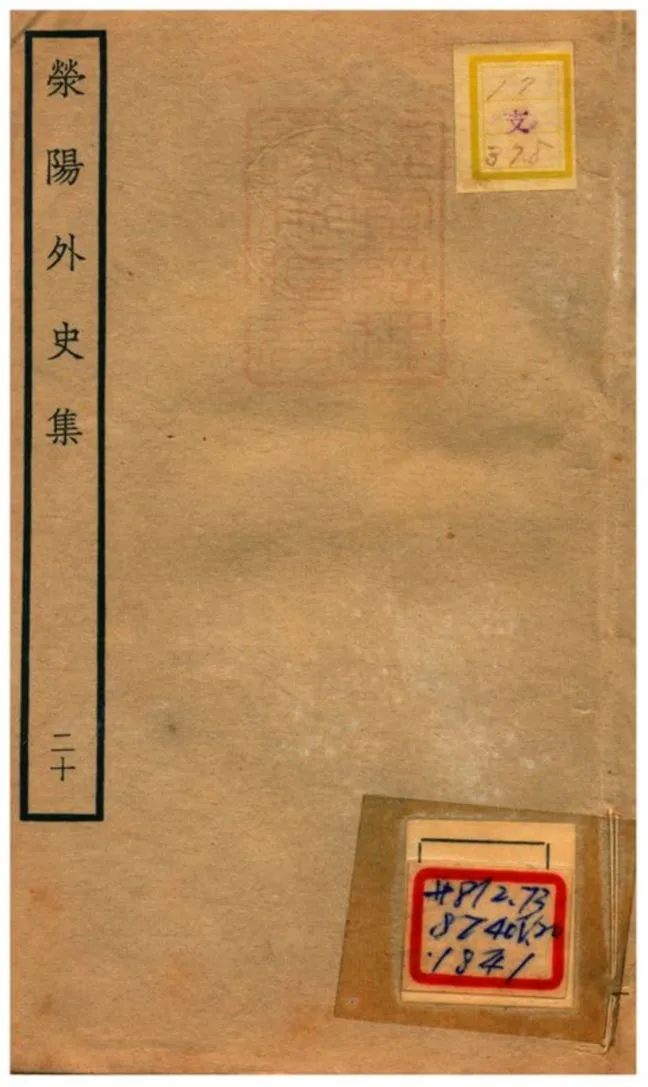 滎陽外史集
二十
17
支
378
#812.73
8740V.20
.1841